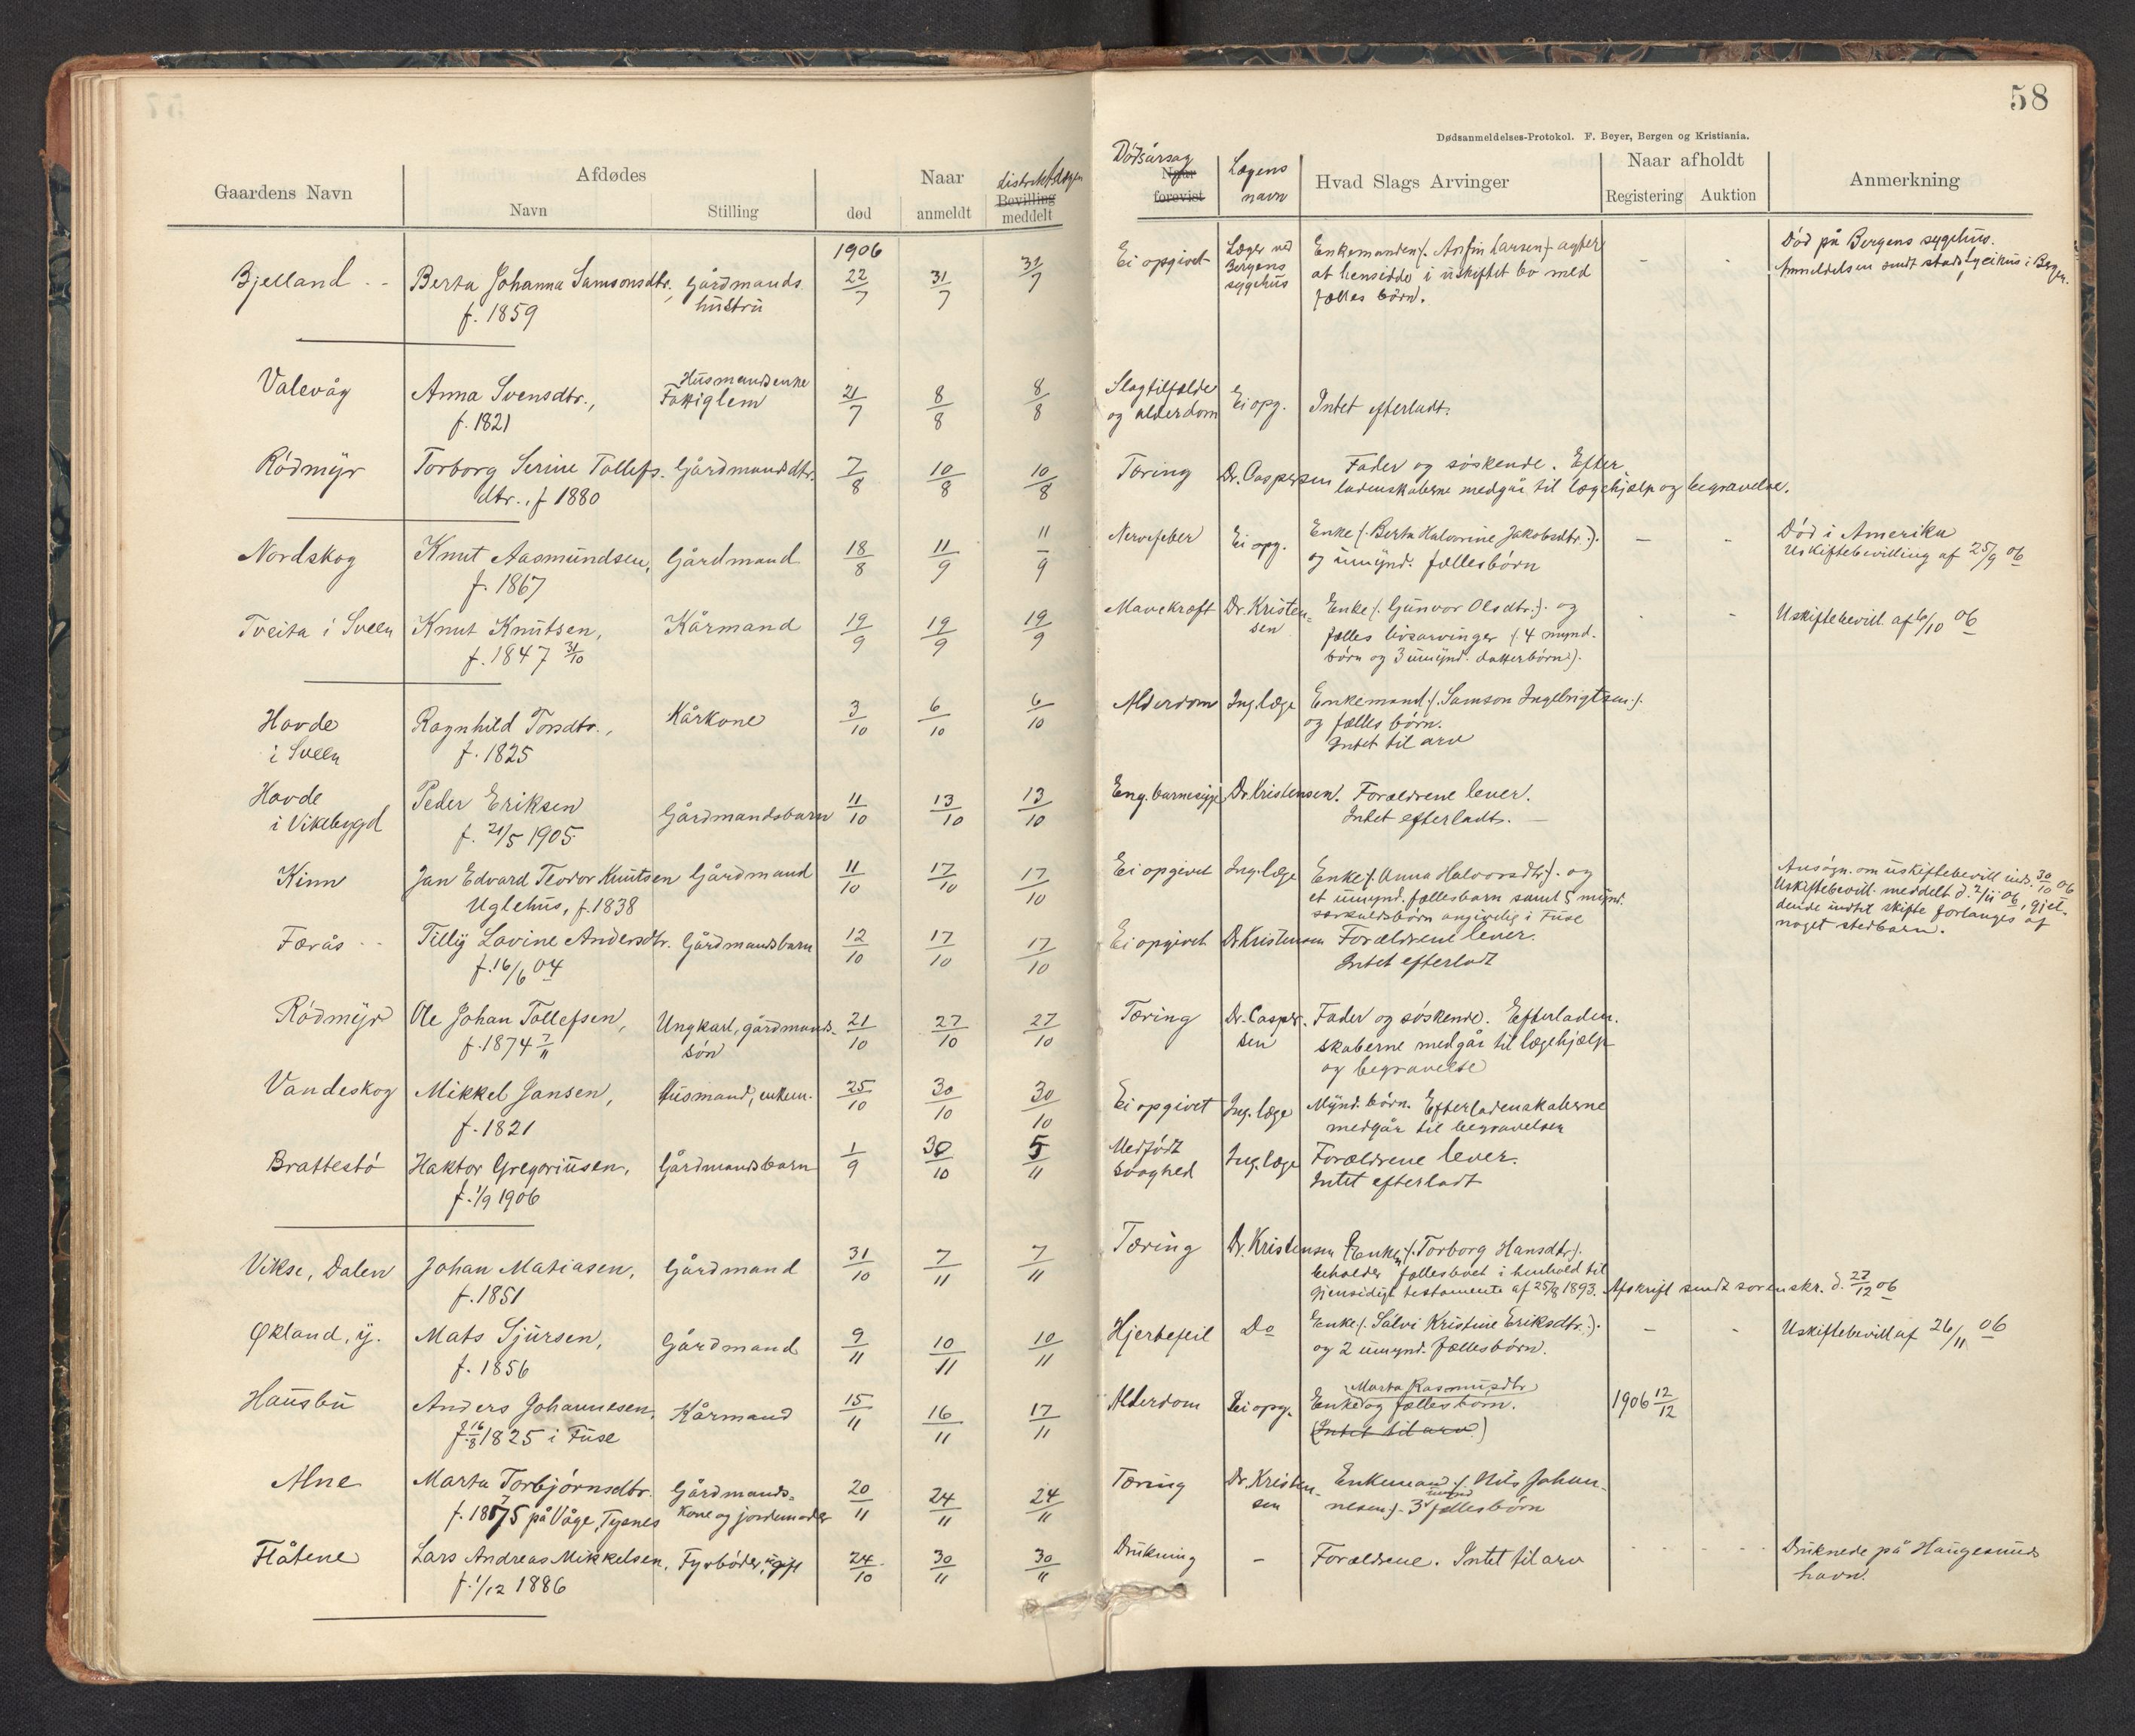 58
Dødsanmeldelses-Protokol. F. Beyer, Bergen og Kristiania.
Gaardens Navn
Afdødes
Navn
Stilling
Naar
død
anmeldt
distriktslægen
Bevilling
meddelt
Dødsårsag
Naar
forevist
Lægens
navn
Hvad Slags Arvinger
Naar afholdt
Registering
Auktion
Anmerkning
1906
Bjelland - - Berta Johanna Samsonsdtr. Gårdmands 22/7 31/7 31/7 Ei opgivet Læger ved Enkemanden /. Anfin Larsen /. agter - Død på Bergens sygehus.
f. 1859 hustru Bergens at hensidde i uskiftet bo med Anmeldelsen sendt stadsfysikus i Bergen.
sygehus fælles børn.
Valevåg Anna Svensdtr., Husmandsenke 21/7 8/8 8/8 Slagtilfælde Ei opg. Intet efterladt.
f. 1821 Fattiglem og alderdom
Rødmyr Torborg Serine Tollefs. Gårdmandsdtr. 7/8 10/8 10/8 Tæring Dr. Caspersen Fader og søskende. Efter
dtr., f 1880 ladenskaberne medgår til lægehjælp og begravelse.
Nordskog Knut Aasmundsen, Gårdmand 18/8 11/9 11/9 Nervefeber Ei opg. Enke /. Berta Halvorine Jakobsdtr. /. - - Død i Amerika
f. 1867 og umynd. fællesbørn Uskiftebevilling af 25/9 06
Tveita i Sveen Knut Knutsen, Kårmand 19/9 19/9 19/9 Mavekræft Dr. Kristen- Enke /. Gunvor Olsdtr. /. og - - Uskiftebevill. af 6/10 06
f. 1847 31/10 sen fælles livsarvinger (4 mynd.
børn og 3 umynd. datterbørn).
Hovde Ragnhild Torsdtr., Kårkone 3/10 6/10 6/10 Alderdom Ing. læge Enkemand /. Samson Ingebrigtsen /.
i Sveen f. 1825 og fælles børn.
Intet til arv
Hovde Peder Eriksen Gårdmandsbarn 11/10 13/10 13/10 Eng. barnesyge Dr. Kristensen. Forældrene lever.
i Vikebygd f. 21/5 1905 Intet efterladt. -
Kinn Jan Edvard Teodor Knutsen Gårdmand 11/10 17/10 17/10 Ei opgivet Ing. læge Enke /. Anna Halvorsdtr /. og Ansøgn. om uskiftebevill. inds. 30/10 06
Uglehus, f. 1838 et umynd. fællesbarn samt 5 mynd. Uskiftebevill. meddelt d. 2/11 06, gjel-
særkuldsbørn angivelig i Fuse dende indtil skifte forlanges af
noget stedbarn.
Færås - - Tilly Lovine Andersdtr. Gårdmandsbarn 12/10 17/10 17/10 Ei opgivet Dr Kristensen Forældrene lever.
f. 16/6 04 Intet efterladt
Rødmyr Ole Johan Tollefsen, Ungkarl, gårdmands- 21/10 27/10 27/10 Tæring Dr. Casper- Fader og søskende. Efterladen-
f. 1874 7/11 søn sen skaberne medgår til lægehjælp
og begravelse
Vandeskog Mikkel Jansen, Husmand, enkem. 25/10 30/10 30/10 Ei opgivet Ing. læge Mynd. børn. Efterladenskaberne
f. 1821 medgår til begravelsen
Brattestø Haktor Gregoriusen, Gårdmandsbarn 1/9 30/10 5/11 Medfødt Ing. læge Forældrene lever.
f. 1/9 1906 svaghed Intet efterladt
Vikse, Dalen Johan Matiasen, Gårdmand 31/10 7/11 7/11 Tæring Dr. Kristensen Enken /. Torborg Hansdtr /.
f. 1851 beholder fællesboet i henhold til
gjensidigt testamente af 25/8 1893. Afskrift sendt sorenskr. d. 27/12 06
Økland, y. Mats Sjursen, Gårdmand 9/11 10/11 10/11 Hjertefeil Do Enke /. Sålvi Kristine Eriksdtr. /. - - Uskiftebevill af 26/11 06
f. 1856 og 2 umynd. fællesbørn.
Hausbu Anders Johannesen, Kårmand 15/11 16/11 17/11 Alderdom Ei opg. Marta Rasmusdtr 1906 12/12
f. 16/8 1825 i Fuse Enke og fællesbørn.
(Intet til arv)
Alne Marta Torbjørnsdtr. Gårdmands- 20/11 24/11 24/11 Tæring Dr. Kristen- Enkemand /. Nils Johan-
f. 1875 på Våge, Tysnes kone og jordemoder sen nesen /. 3 umynd fællesbørn
Flåtene Lars Andreas Mikkelsen, Fyrbøder, ugift 24/10 30/11 30/11 Drukning - Forældrene. Intet til arv - - - - Druknede på Haugesunds
f. 1/12 1886 havn.